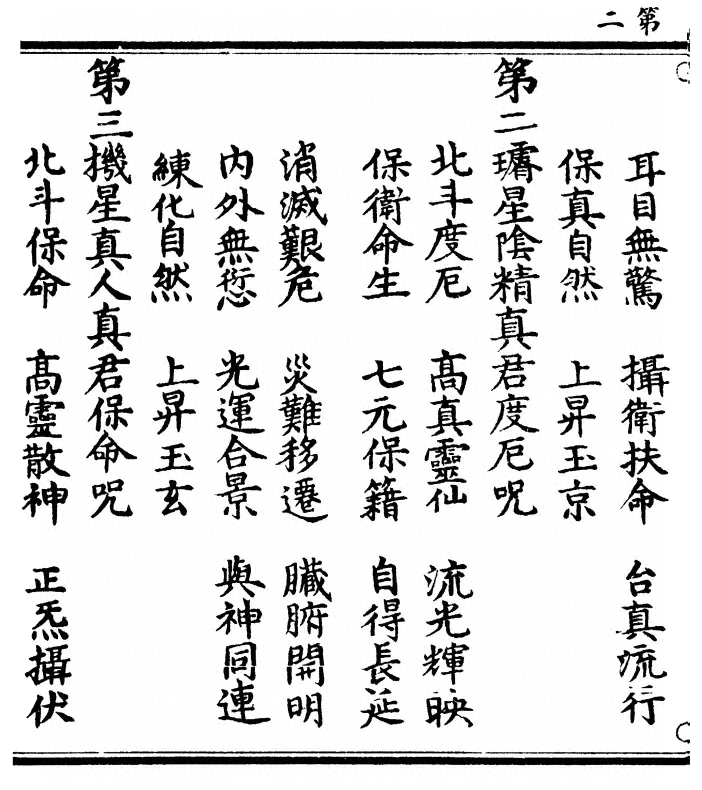 第二
耳目無驚　攝衛扶命　台真流行
保真自然　上昇玉京
第二璿星陰精真君度厄咒
北斗度厄　高真靈仙　流光輝映
保衛命生　七元保籍　自得長延
消滅艱危　災難移遷　臟腑開明
內外無愆　光運合景　與神同連
練化自然　上昇玉玄
第三機星真人真君保命咒
北斗保命　高靈散神　正炁攝伏